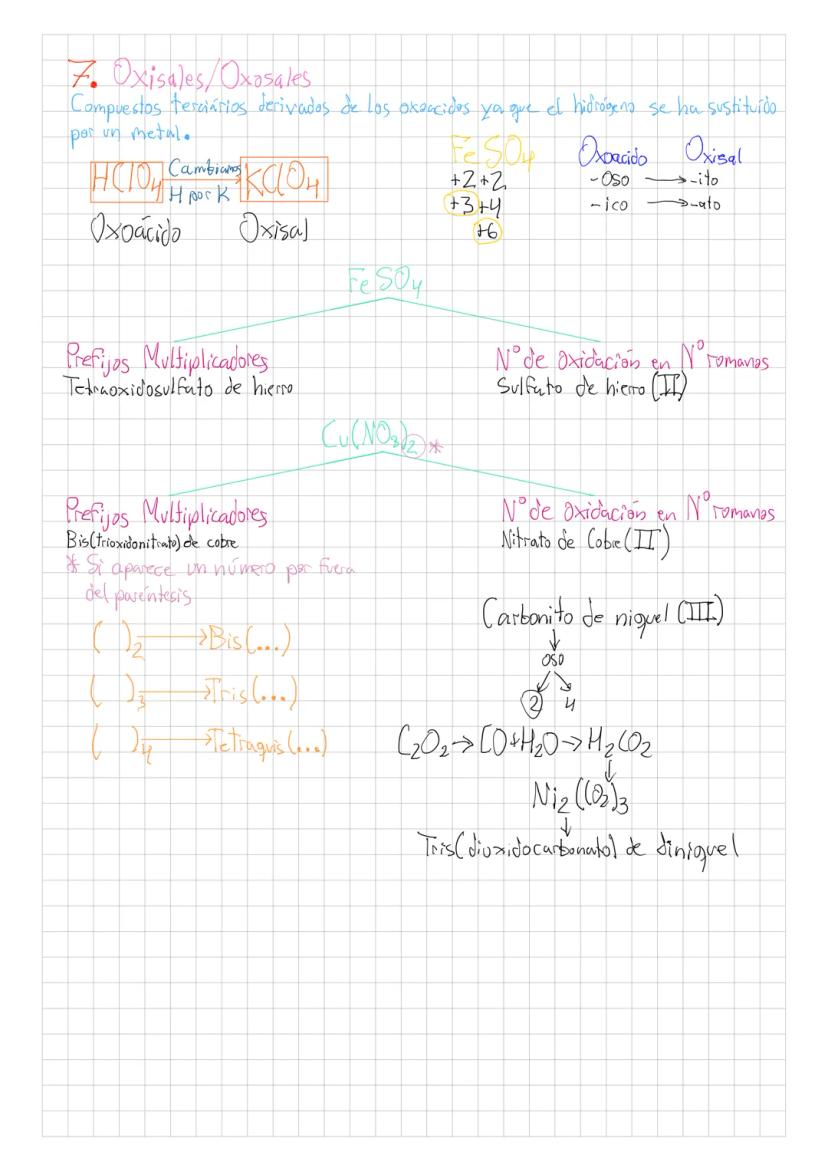 7. Oxisales/Oxosales
Compuestos terciários derivados de los oxoacidos ya que el hidrógeno se ha sustituído
por un metal.
HClO4 Cambiamos H por K KClO4
Oxoácido Oxisal
FeSO4
+2 +2
+3 +4
+6
Oxoacido Oxisal
-oso → -ito
-ico → -ato
FeSO4
Prefijos Multiplicadores
Tetraoxidosulfato de hierro
Nº de oxidación en Nº romanos
Sulfato de hierro (II)
Cu(NO3)2 *
Prefijos Multiplicadores
Bis(trioxidonitrato) de cobre
Nº de oxidación en Nº romanos
Nitrato de Cobre (II)
* Si aparece un número por fuera
del paréntesis
( )2 → Bis(...)
( )3 → Tris(...)
( )4 → Tetraquis(...)
Carbonito de niquel (III)
↓
oso
2 4
C2O2 → CO + H2O → H2CO2
↓
Ni2(CO2)3
↓
Tris(dioxidocarbonato) de diniquel